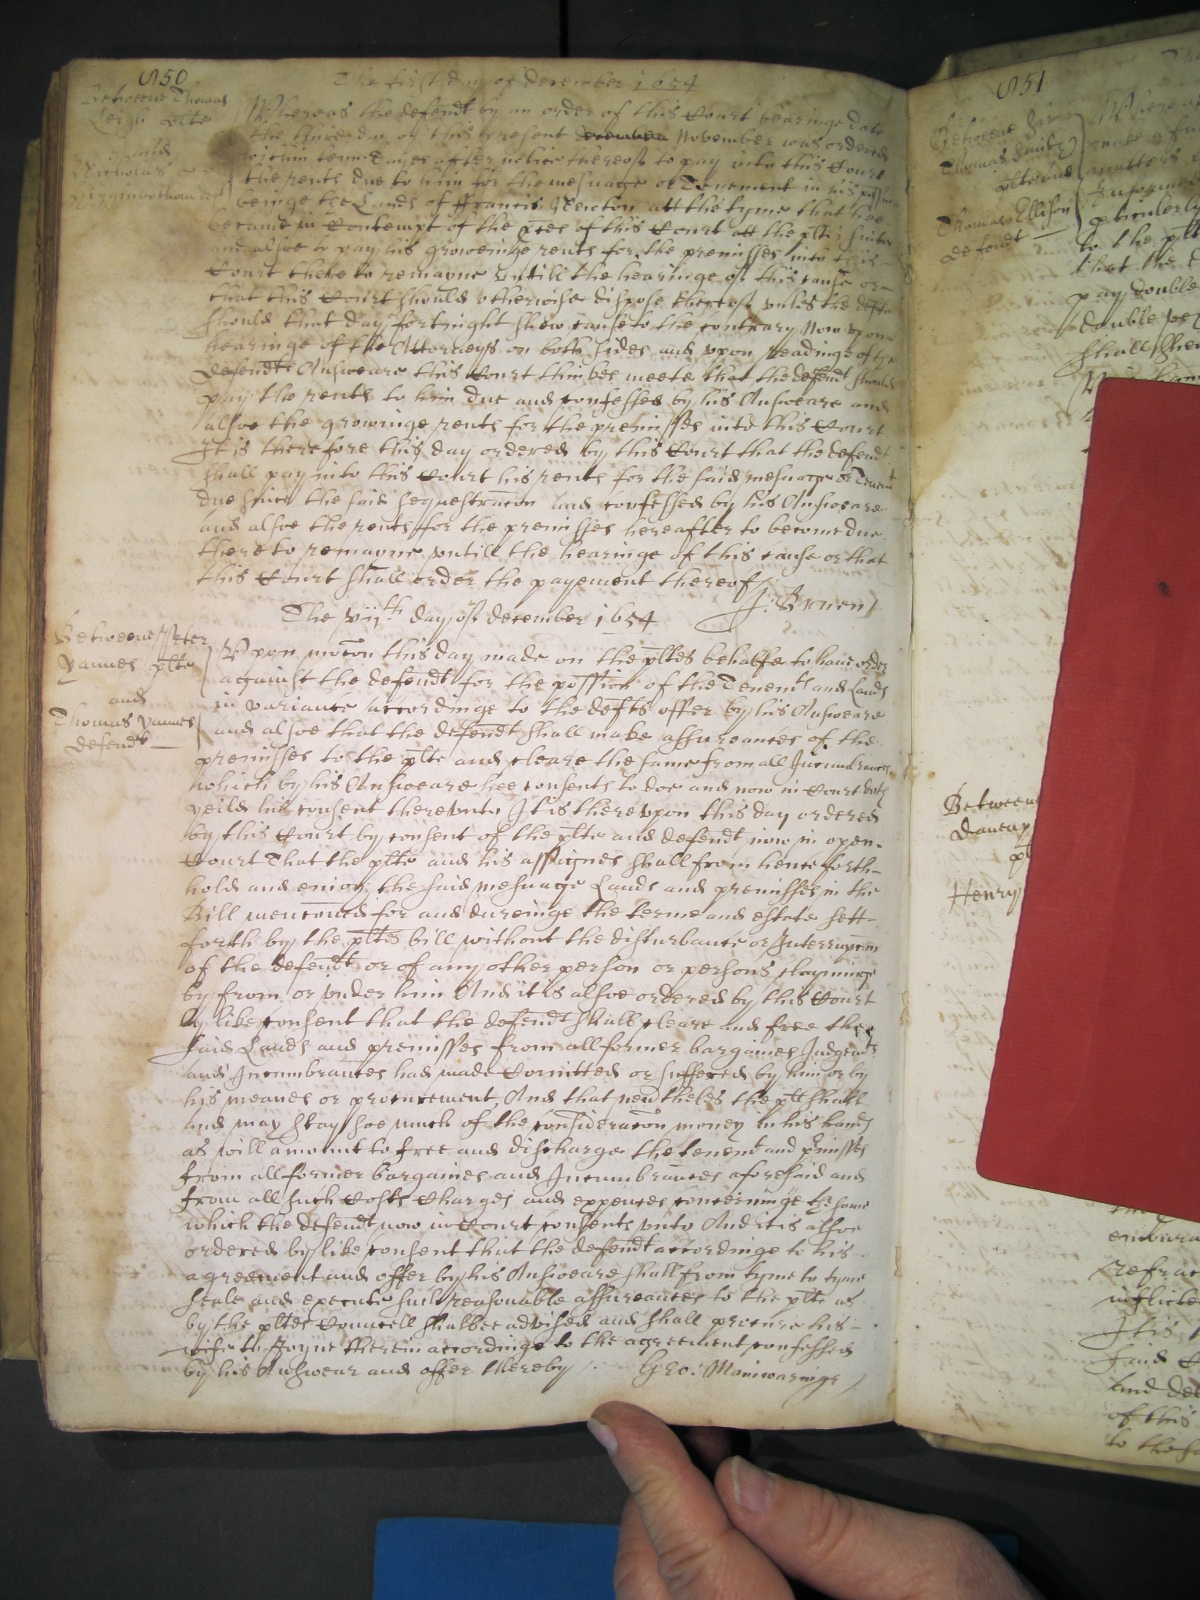 850
The first day of december 1654
Betweene Thomas
Leigh plte
and
Nicholas
defendt
Whereas the defendt by an order of this Court bearinge date
the third day of this present November was ordered
within tenn dayes after notice thereof to pay into this Court
the rents due to him for the mesuage or Tenement in his
beinge the Lands of ffrancis Newton att the tyme that hee
became in Contempt of the pces of this Court att the plts suite
and alsoe to pay his groweinge rents for the premisses into this
Court there to remayne untill the hearinge of this cause or
that this Court should otherwise dispose thereof unles the defte
should that day fortnight shew cause to the contrary Now upon
hearinge of the Attorneys on both sides and upon readinge of the
defendts Answeare this Court thinkes meete that the defendt should
pay the rents to him due and confessed by his Answeare and
alsoe the growinge rents for the premisses into this Court
It is therefore this day ordered by this Court that the defendt
shall pay into this Court his rents for the said mesuage or Tenemt
due since the said sequestracon and confessed by his Answeare
and alsoe the rents for the premisses hereafter to become due
there to remayne untill the hearinge of this cause or that
this Court shall order the payement thereof
J: Bruen
The viith day of december 1654
Betweene Peter
Yannes plte
and
Thomas Yannes
defendt
Upon mocon this day made on the pltes behalfe to have order
against the defendt for the possion of the Tenemt and Lands
in variance accordinge to the defts offer by his Answeare
and alsoe that the defendt shall make assureances of the
premisses to the plte and cleare the same from all Incumbrances
which by his Answeare hee consents to doe and now in Court doth
yeild his consent thereunto It is thereupon this day ordered
by this Court by consent of the plte and defendt now in open
Court That the plte and his assignes shall from henceforth
hold and enioy the said mesuage Lands and premisses in the
Bill menconed for and dureinge the terme and estate sett
forth by the pltes bill without the disturbance or Interrupcon
of the defendt or of any other person or persons clayminge
by from or under him And it is alsoe ordered by this Court
by like consent that the defendt shall cleare and free the
said Lands and premisses from all former bargaines Judgemts
and Incumbrances had made comitted or suffered by him or by
his meanes or procurement, And that neverthelesse the plt shall
and may stay soe much of the consideracon money in his hands
as will amount to free and discharge the tenemt and pmisses
from all former bargaines and Incumbrances aforesaid and
from all such Costs Charges and expences concerninge the same
which the defendt now in Court consents unto And it is alsoe
ordered by like consent that the defendt accordinge to his
agreement and offer by his Answeare shall from tyme to tyme
seale and execute such reasonable assureances to the plte as
by the pltes Councell shalbee advised and shall procure his
wife to Joyne therein accordinge to the agreement confessed
by his Answear and offer thereby
Geo: Maniwaringe
851
Thomas
plte and
Thomas Ellison
defendt
matters
Informe
pticularly
to the plt
that the d
pay double
double
shall shew
Betweene
Henry
refrac
inflicte
It is
and de
of this
to the